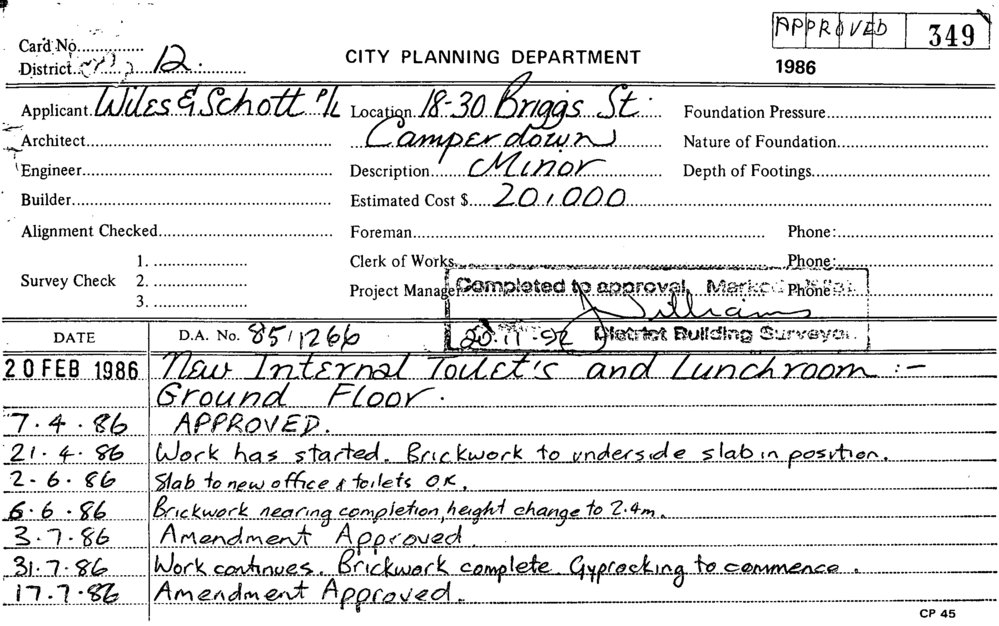 APPROVED 349
Card No.
District 12.
CITY PLANNING DEPARTMENT
1986
Applicant Wiles & Schott P/L Location 18-30 Briggs St. Foundation Pressure
Architect Camperdown Nature of Foundation
Engineer Description Minor Depth of Footings
Builder Estimated Cost $ 20,000
Alignment Checked Foreman Phone:
Survey Check 1. Clerk of Works Phone:
2. Project Manager Phone
3.
Completed to approval, Marked
Williams
20.11.92 District Building Surveyor.
DATE D.A. No. 85/1266
20 FEB 1986 New Internal Toilet's and Lunchroom :-
Ground Floor.
7.4.86 APPROVED.
21.4.86 Work has started. Brickwork to underside slab in position.
2-6.86 Slab to new office & toilets OK.
6.6.86 Brickwork nearing completion, height change to 2.4m.
3.7.86 Amendment Approved
31.7.86 Work continues. Brickwork complete. Gyprocking to commence.
17.7.86 Amendment Approved.
CP 45